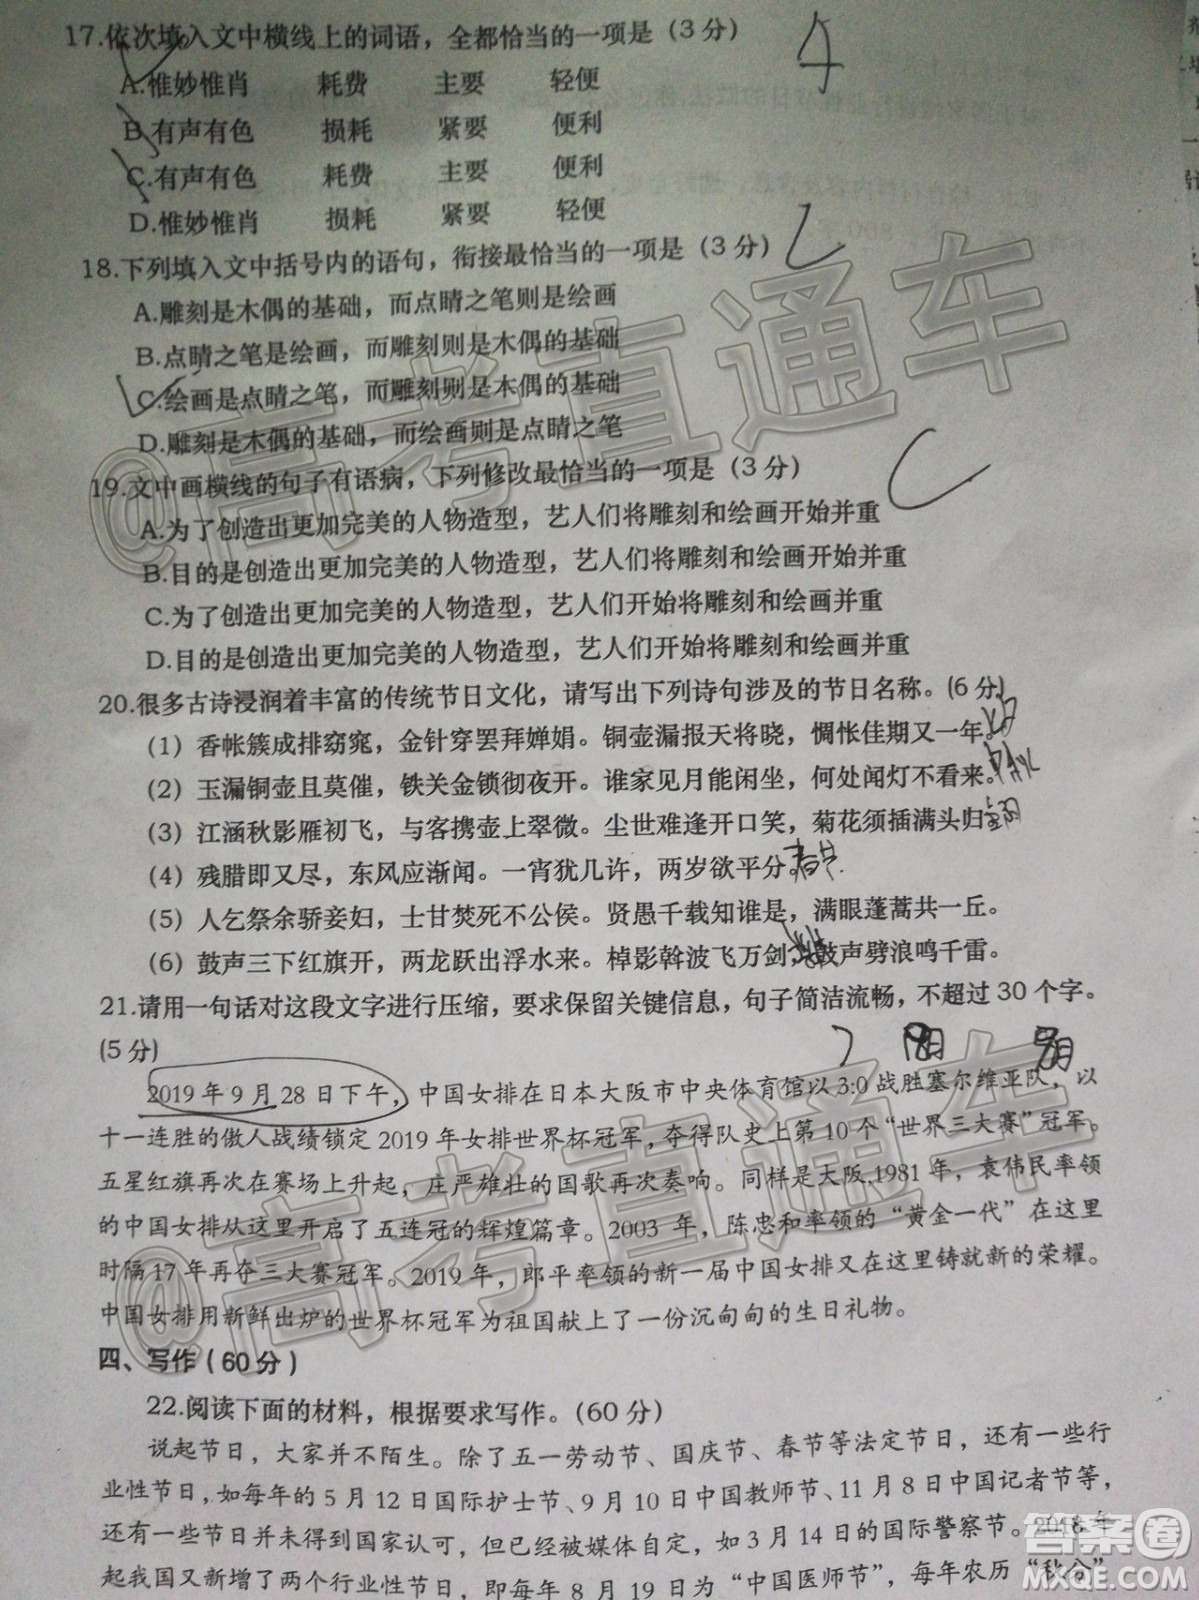 17.依次填入文中横线上的词语，全都恰当的一项是（3分）
A.惟妙惟肖 耗费 主要 轻便
B.有声有色 损耗 紧要 便利
C.有声有色 耗费 主要 便利
D.惟妙惟肖 损耗 紧要 轻便
18.下列填入文中括号内的语句，衔接最恰当的一项是（3分）
A.雕刻是木偶的基础，而点睛之笔则是绘画
B.点睛之笔是绘画，而雕刻则是木偶的基础
C.绘画是点睛之笔，而雕刻则是木偶的基础
D.雕刻是木偶的基础，而绘画则是点睛之笔
19.文中画横线的句子有语病，下列修改最恰当的一项是（3分）
A.为了创造出更加完美的人物造型，艺人们将雕刻和绘画开始并重
B.目的是创造出更加完美的人物造型，艺人们将雕刻和绘画开始并重
C.为了创造出更加完美的人物造型，艺人们开始将雕刻和绘画并重
D.目的是创造出更加完美的人物造型，艺人们开始将雕刻和绘画并重
20.很多古诗浸润着丰富的传统节日文化，请写出下列诗句涉及的节日名称。(6分)
(1) 香帐簇成排窈窕，金针穿罢拜婵娟。铜壶漏报天将晓，惆怅佳期又一年。
(2) 玉漏铜壶且莫催，铁关金锁彻夜开。谁家见月能闲坐，何处闻灯不看来。
(3) 江涵秋影雁初飞，与客携壶上翠微。尘世难逢开口笑，菊花须插满头归
(4) 残腊即又尽，东风应渐闻。一宵犹几许，两岁欲平分。春节
(5) 人乞祭余骄妾妇，士甘焚死不公侯。贤愚千载知谁是，满眼蓬蒿共一丘。
(6) 鼓声三下红旗开，两龙跃出浮水来。棹影斡波飞万剑，鼓声劈浪鸣千雷。
21.请用一句话对这段文字进行压缩，要求保留关键信息，句子简洁流畅，不超过30个字。
(5分)
2019年9月28日下午，中国女排在日本大阪市中央体育馆以3:0战胜塞尔维亚队，以
十一连胜的傲人战绩锁定2019年女排世界杯冠军，夺得队史上第10个“世界三大赛”冠军。
五星红旗再次在赛场上升起，庄严雄壮的国歌再次奏响。同样是大阪,1981年，袁伟民率领
的中国女排从这里开启了五连冠的辉煌篇章。2003年，陈忠和率领的“黄金一代”在这里
时隔17年再夺三大赛冠军。2019年，郎平率领的新一届中国女排又在这里铸就新的荣耀。
中国女排用新鲜出炉的世界杯冠军为祖国献上了一份沉甸甸的生日礼物。
四、写作（60分）
22.阅读下面的材料，根据要求写作。（60分）
说起节日，大家并不陌生。除了五一劳动节、国庆节、春节等法定节日，还有一些行
业性节日，如每年的5月12日国际护士节、9月10日中国教师节、11月8日中国记者节等，
还有一些节日并未得到国家认可，但已经被媒体自定，如3月14日的国际警察节。2018年
起我国又新增了两个行业性节日，即每年8月19日为“中国医师节”，每年农历“秋分”
@高考直通车
@高考直通车
答案圈
MXQE.COM